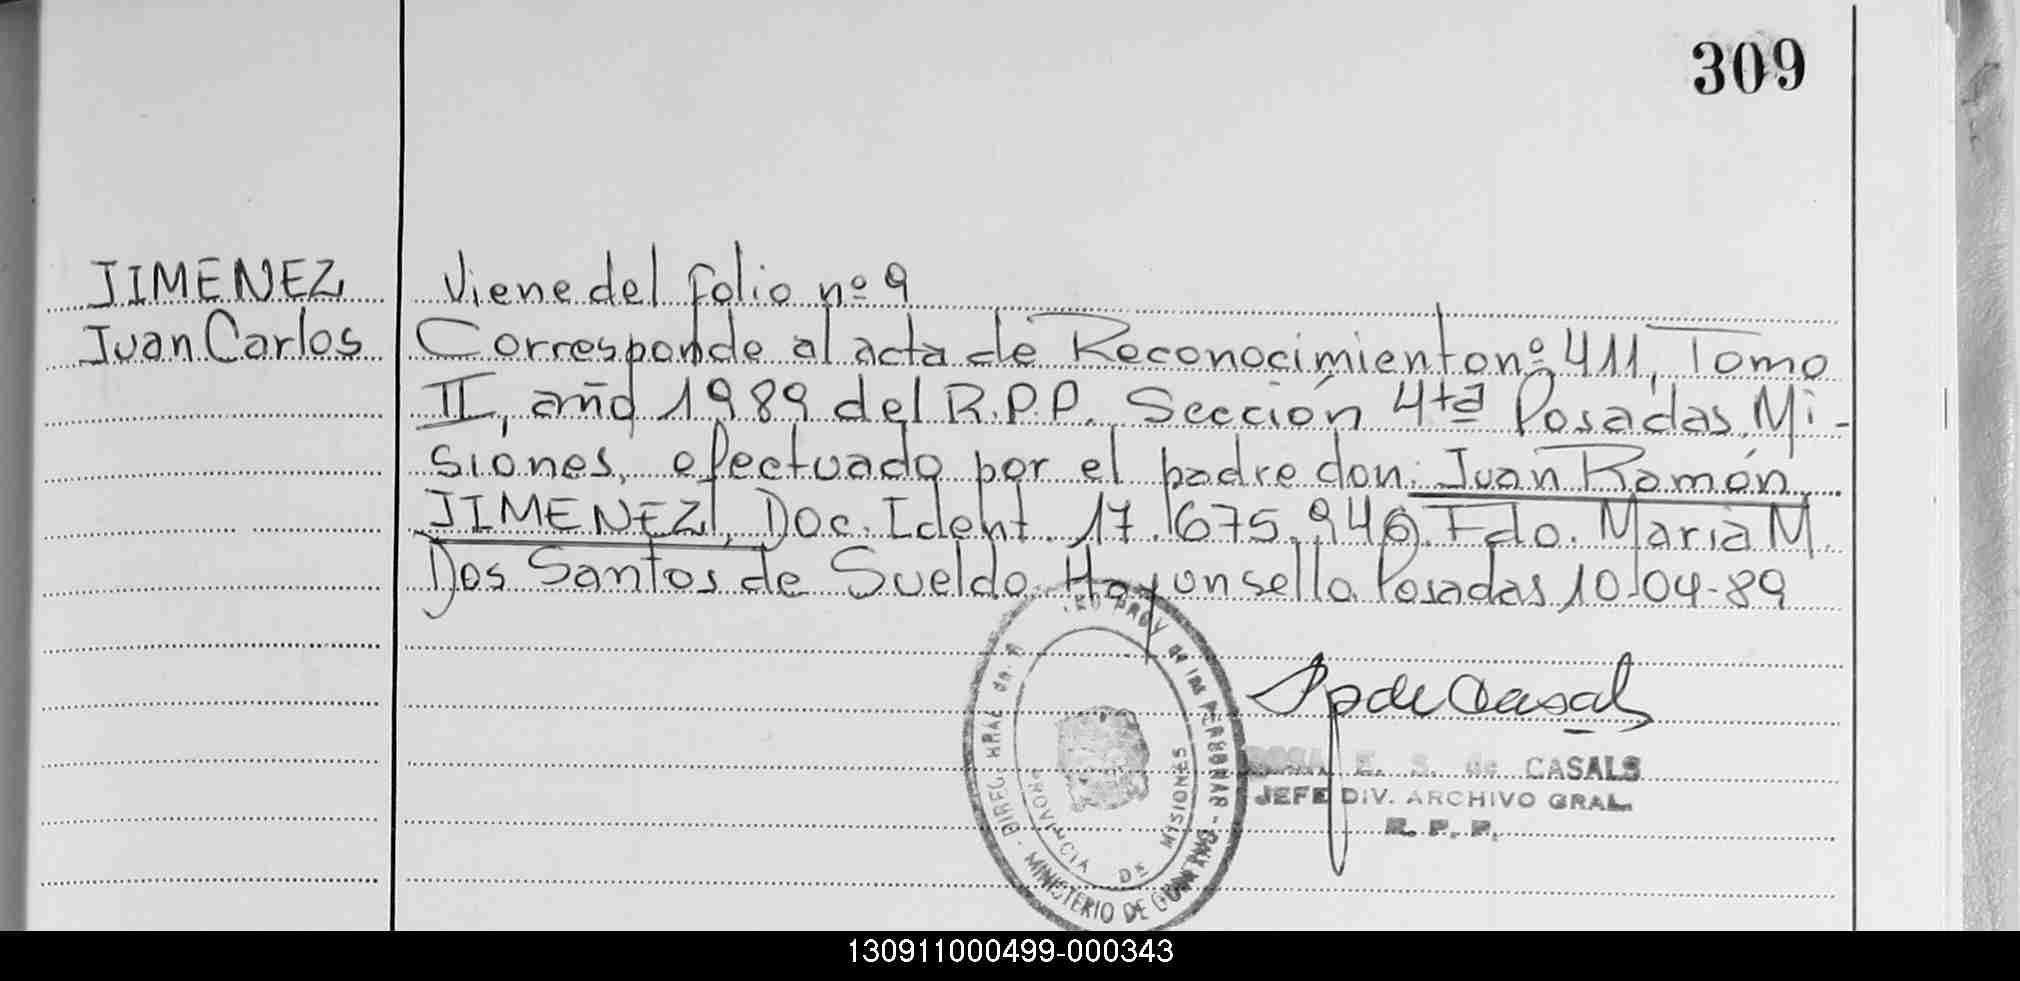 309
JIMENEZ
Juan Carlos
Viene del folio nº 9
Corresponde al acta de Reconocimiento nº 411, Tomo
II, año 1989 del R.P.P. Sección 4ta Posadas, Mi-
siones, efectuado por el padre don: Juan Ramón
JIMENEZ, Doc. Ident. 17.675.946. Fdo. Maria M.
Dos Santos de Sueldo. Hay un sello. Posadas 10-04-89
de las PERSONAS -
MINISTERIO DE
PROVINCIA DE MISIONES
E. S. de CASALS
JEFE DIV. ARCHIVO GRAL.
R. P. P.
130911000499-000343